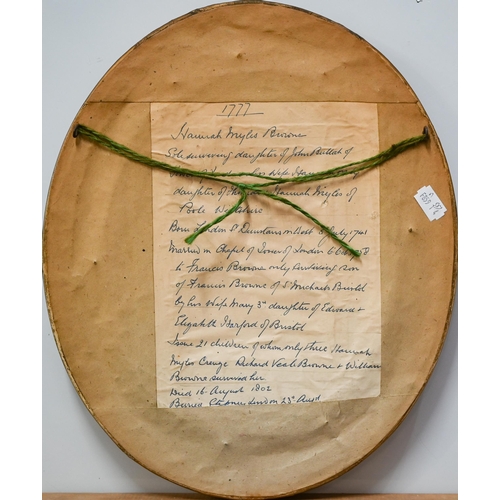 1777
Hannah Myles Browne
Sole surviving daughter of John Pullah of
his Wife
daughter of Hannah Myles of
Poole
Born London St Dunstans July 1741
Married in Chapel of Tower of London
to Francis Browne only surviving son
of Francis Browne of St Michaels Bristol
by his Wife Mary 3rd daughter of Edward &
Elizabeth Harford of Bristol
Issue 21 children of whom only three Hannah
Myles Creuze Richard Veale Browne & William
Browne survived her
Died 16 August 1802
Buried London 23rd Augst